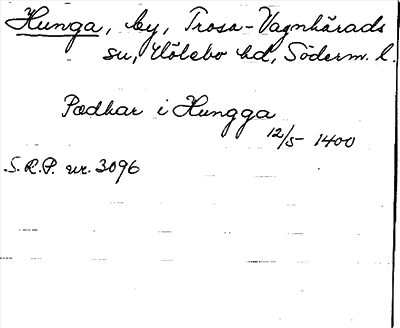 Hunga, by, Trosa-Vagnhärads
su, Hölebo hd, Söderm. l.
Pædhar i Hungga
12/5 1400
S.R.P. nr. 3096